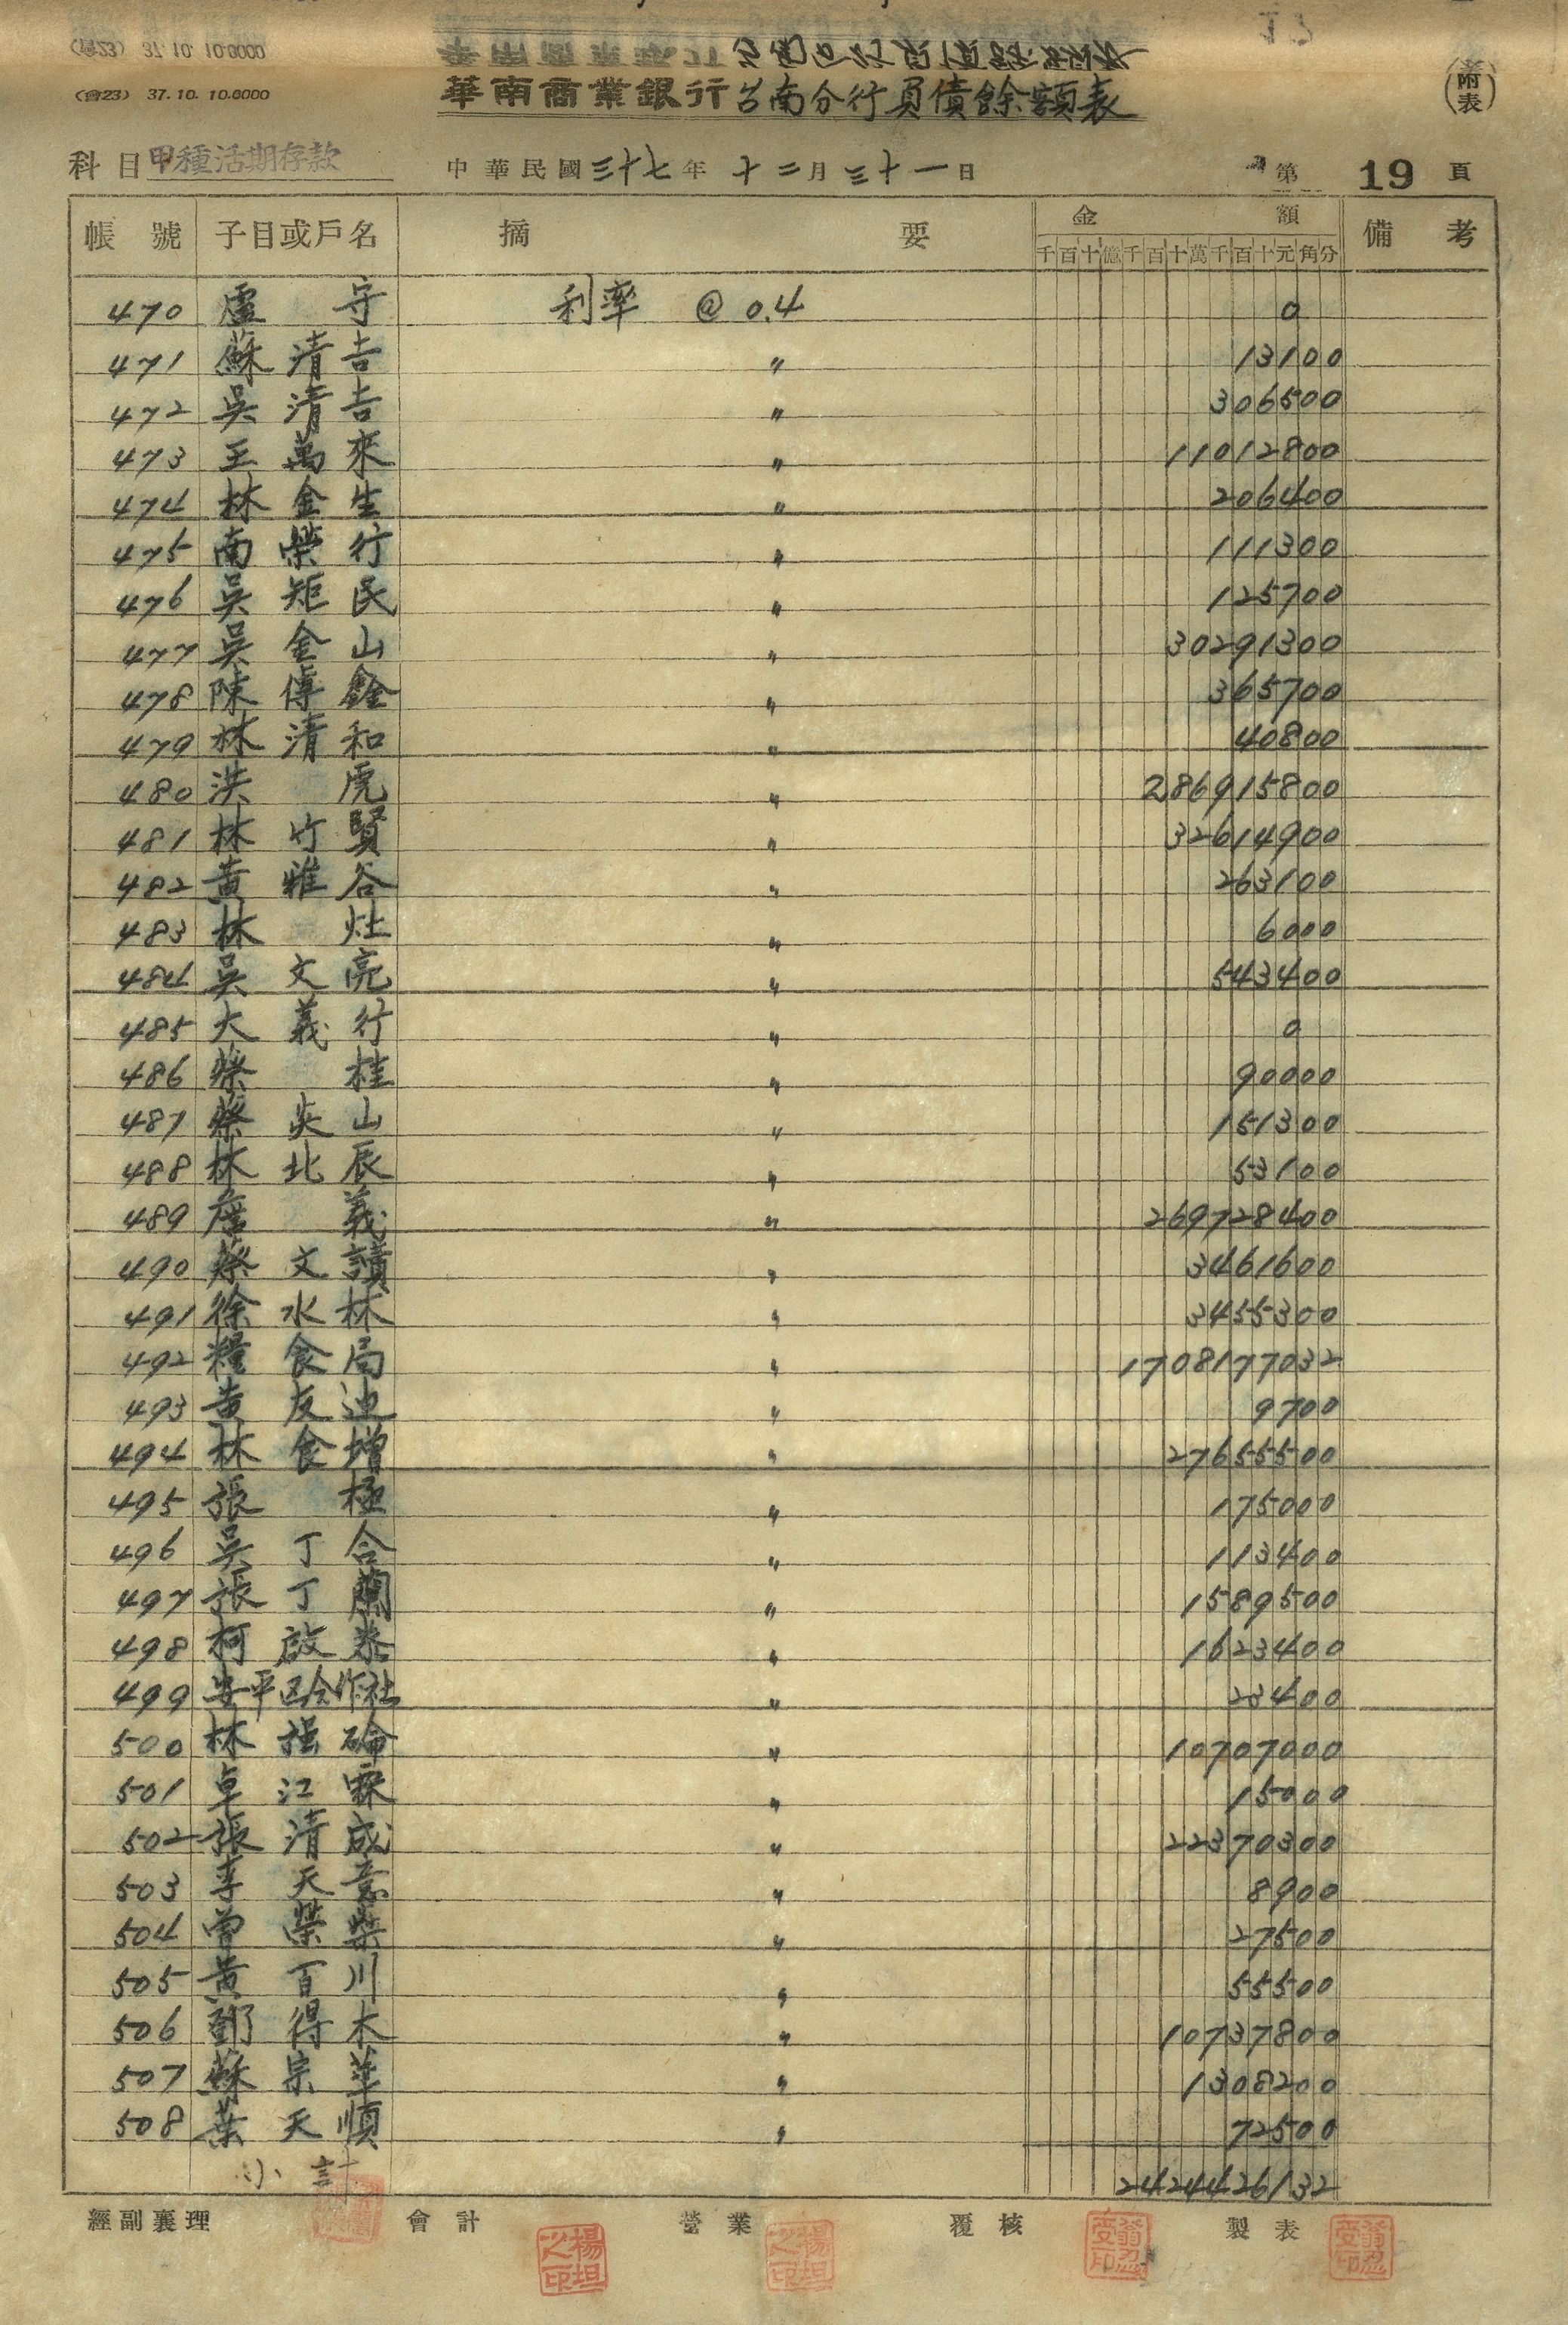 (會23) 37. 10. 10.0000
華南商業銀行台南分行負債餘額表
(附表)
科目 甲種活期存款 中華民國三十七年十二月三十一日 第 19 頁
帳號 子目或戶名 摘要 金額 備考
千百十億千百十萬千百十元角分
470 盧守 利率 @ 0.4 0
471 蘇清吉 〃 13100
472 吳清吉 〃 306500
473 王萬來 〃 11012800
474 林金生 〃 206400
475 南榮行 〃 111300
476 吳矩民 〃 125700
477 吳金山 〃 30291300
478 陳傳鎗 〃 365700
479 林清和 〃 40800
480 洪虎 〃 286915800
481 林竹賢 〃 32614900
482 黃雅谷 〃 263100
483 林灶 〃 6000
484 吳文亮 〃 543400
485 大義行 〃 0
486 蔡桂 〃 90000
487 蔡炎山 〃 151300
488 林北辰 〃 53100
489 詹義 〃 269728400
490 蔡文讀 〃 3461600
491 徐水林 〃 3455300
492 糧食局 〃 1708177032
493 黃友迪 〃 9700
494 林食增 〃 27655500
495 張極 〃 175000
496 吳丁合 〃 113400
497 張丁蘭 〃 1589500
498 柯啟泰 〃 1623400
499 安平區合作社 〃 23400
500 林强碖 〃 10707000
501 卓江霖 〃 15000
502 張清成 〃 22370300
503 李天意 〃 8900
504 曾榮柴 〃 27500
505 黃百川 〃 55500
506 鄧得木 〃 10737800
507 蘇宗華 〃 1308200
508 葉天順 〃 72500
小計 2424426132
經副襄理 會計 營業 覆核 製表
楊坦之印 楊坦之印 翁忍受印 翁忍受印